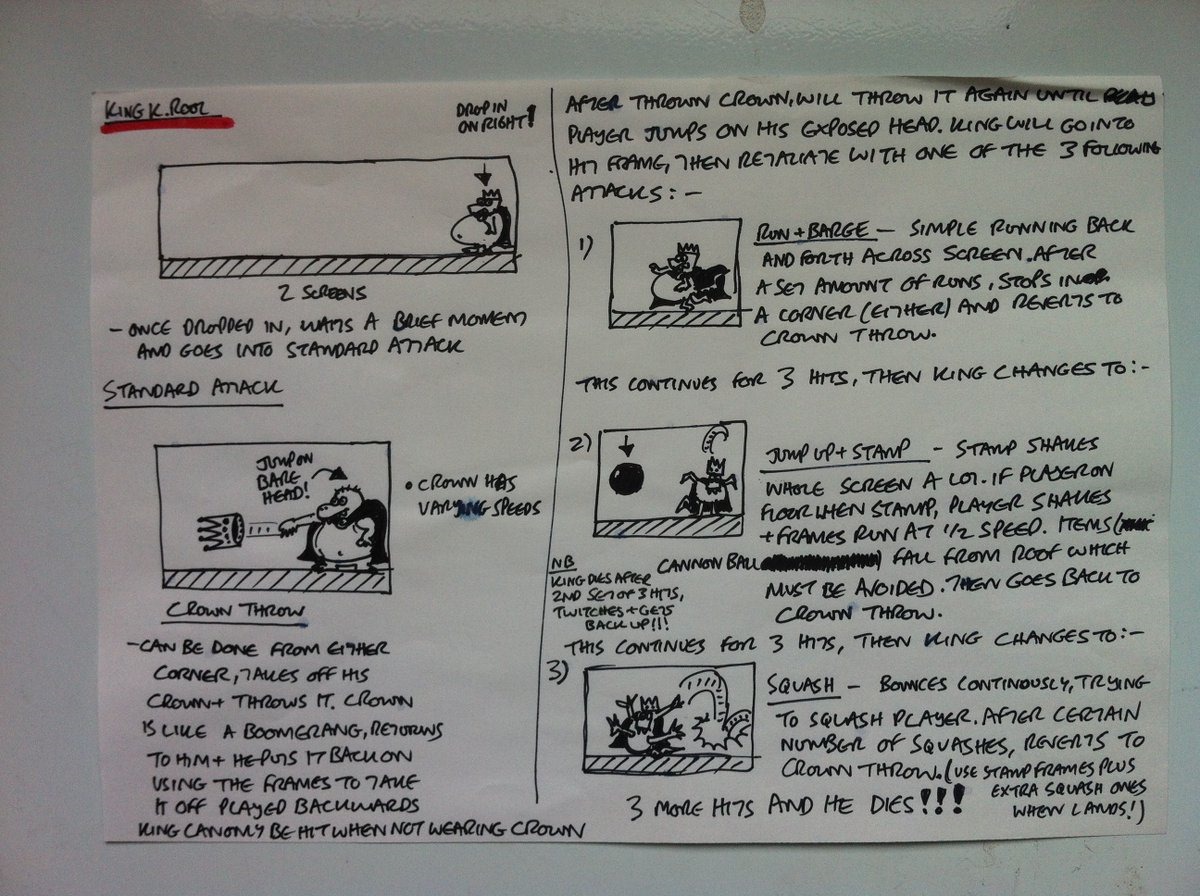 KING K. ROOL
DROP IN
ON RIGHT!
2 SCREENS
- ONCE DROPPED IN, WAITS A BRIEF MOMENT
AND GOES INTO STANDARD ATTACK
STANDARD ATTACK
JUMP ON
BARE
HEAD!
• CROWN HAS
VARYING SPEEDS
CROWN THROW
- CAN BE DONE FROM EITHER
CORNER, TAKES OFF HIS
CROWN + THROWS IT. CROWN
IS LIKE A BOOMERANG, RETURNS
TO HIM + HE PUTS IT BACK ON
USING THE FRAMES TO TAKE
IT OFF PLAYED BACKWARDS
KING CAN ONLY BE HIT WHEN NOT WEARING CROWN
AFTER THROWN CROWN, WILL THROW IT AGAIN UNTIL
PLAYER JUMPS ON HIS EXPOSED HEAD. KING WILL GO INTO
HIT FRAME, THEN RETALIATE WITH ONE OF THE 3 FOLLOWING
ATTACKS: -
1)
RUN + BARGE - SIMPLE RUNNING BACK
AND FORTH ACROSS SCREEN. AFTER
A SET AMOUNT OF RUNS, STOPS IN
A CORNER (EITHER) AND REVERTS TO
CROWN THROW.
THIS CONTINUES FOR 3 HITS, THEN KING CHANGES TO:-
2)
JUMP UP + STAMP - STAMP SHAKES
WHOLE SCREEN A LOT. IF PLAYER ON
FLOOR WHEN STAMP, PLAYER SHAKES
+ FRAMES RUN AT 1/2 SPEED. ITEMS (
CANNON BALL ) FALL FROM ROOF WHICH
MUST BE AVOIDED. THEN GOES BACK TO
CROWN THROW.
NB
KING DIES AFTER
2ND SET OF 3 HITS,
TWITCHES + GETS
BACK UP!!!
THIS CONTINUES FOR 3 HITS, THEN KING CHANGES TO:-
3)
SQUASH - BOUNCES CONTINOUSLY, TRYING
TO SQUASH PLAYER. AFTER CERTAIN
NUMBER OF SQUASHES, REVERTS TO
CROWN THROW. (USE STAMP FRAMES PLUS
EXTRA SQUASH ONES
WHEN LANDS!)
3 MORE HITS AND HE DIES!!!